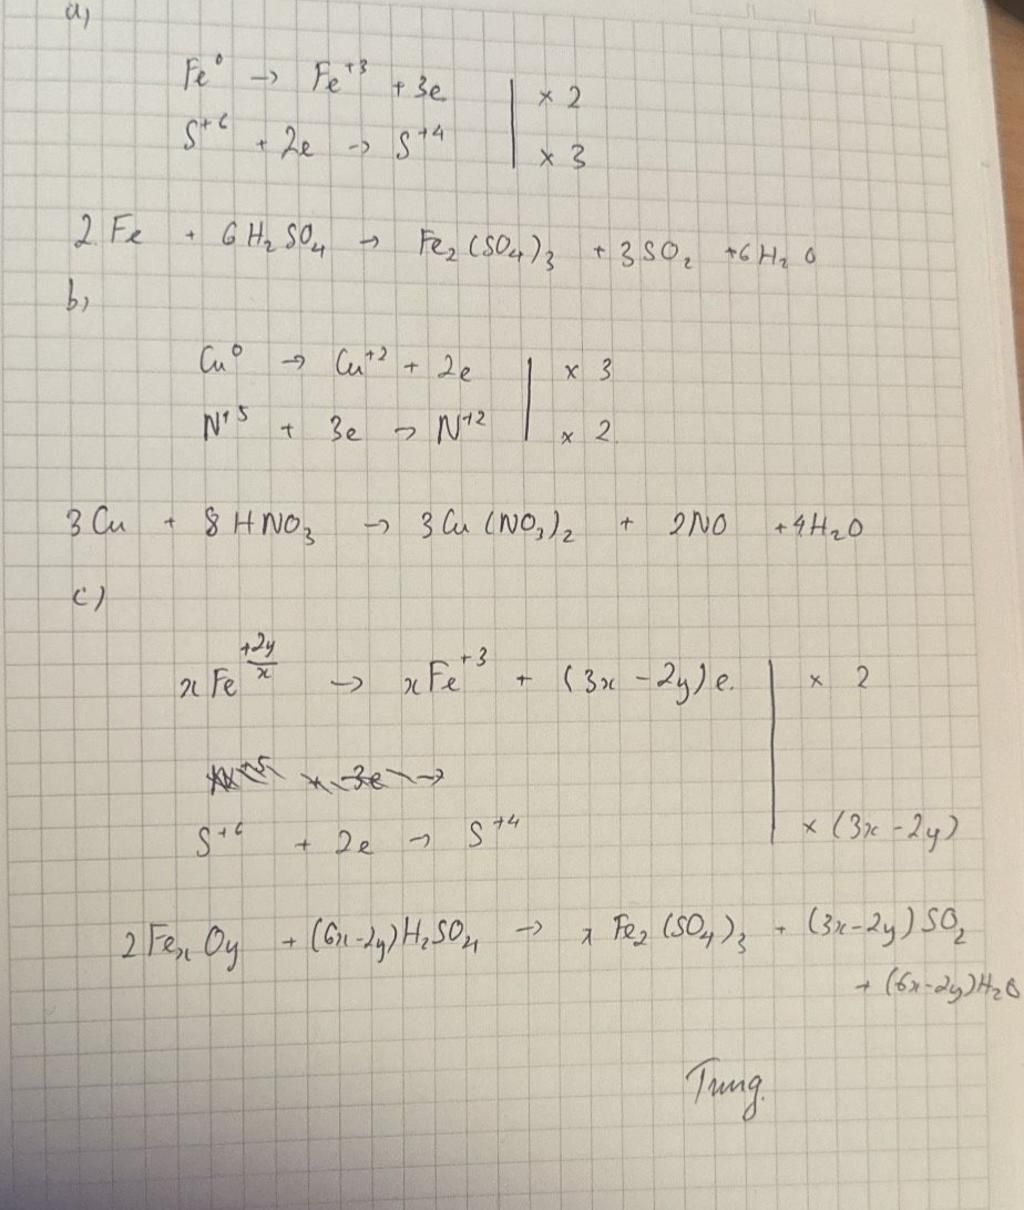 a,
Fe⁰ → Fe⁺³ + 3e | × 2
S⁺⁶ + 2e → S⁺⁴ | × 3
2 Fe + 6 H₂SO₄ → Fe₂(SO₄)₃ + 3SO₂ + 6H₂O
b,
Cu⁰ → Cu⁺² + 2e | × 3
N⁺⁵ + 3e → N⁺² | × 2
3 Cu + 8 HNO₃ → 3 Cu(NO₃)₂ + 2NO + 4H₂O
c)
xFe^(+2y/x) → xFe⁺³ + (3x - 2y)e. | × 2
S⁺⁶ + 2e → S⁺⁴ | × (3x - 2y)
2 FeₓOy + (6x-2y)H₂SO₄ → x Fe₂(SO₄)₃ + (3x-2y)SO₂
+ (6x-2y)H₂O
Trung.